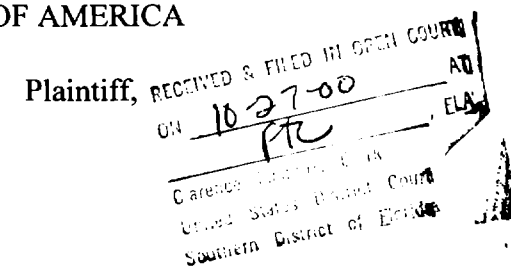 OF AMERICA
Plaintiff,
RECEIVED & FILED IN OPEN COURT
ON 10-27-00 AT
PTC, FLA.
Clarence
United States District Court
Southern District of Florida